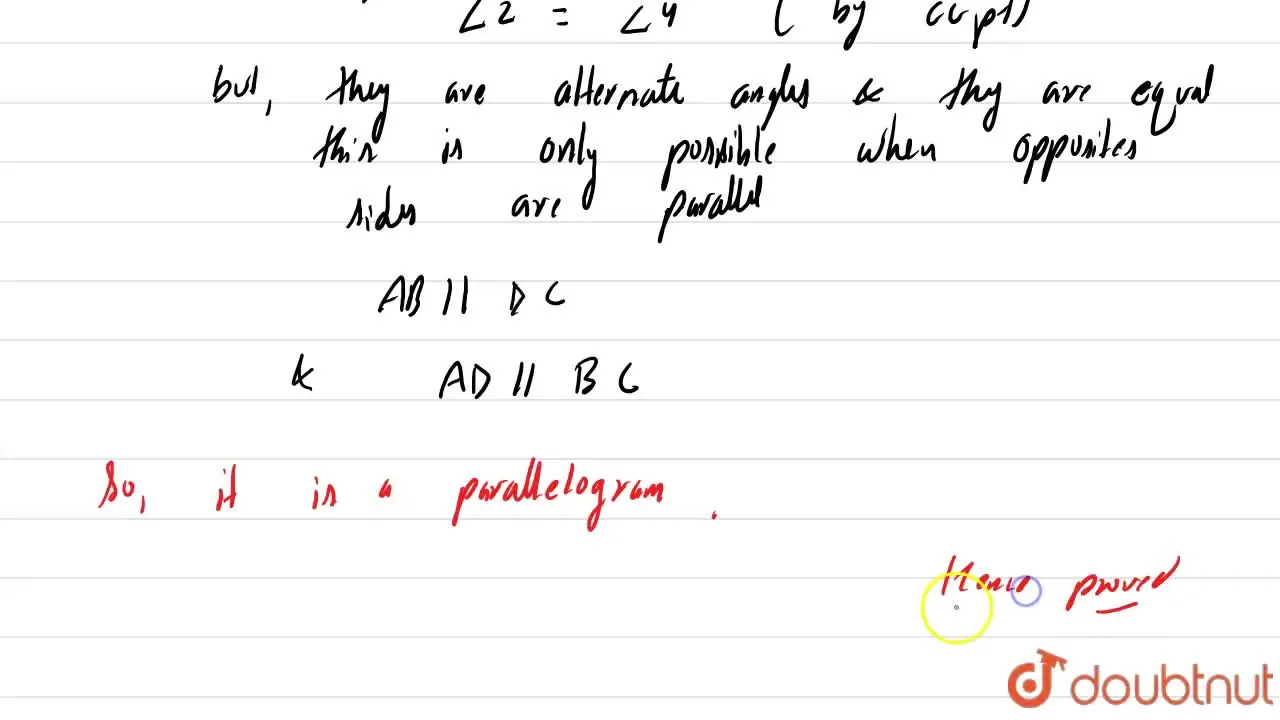 ∠2 = ∠4 ( by ccpt)
but, they are alternate angles & they are equal
this is only possible when opposites
sides are parallel
AB || DC
& AD || BC
So, it is a parallelogram.
Hence proved
doubtnut